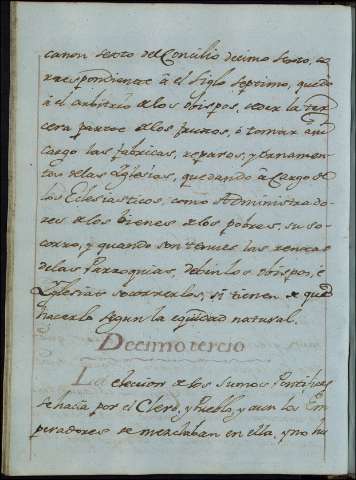 canon sexto del Concilio decimo sexto, co
rrespondiente â el siglo septimo, quedo
â el arbitrio de los obispos, ceder la ter
cera parte de los frutos, ô tomar a su
cargo las fabricas, reparos, y ornamen
tos de las Yglesias, quedando â cargo de
los Eclesiasticos, como Administrado
res de los bienes de los pobres, su so
corro, y quando son tenues las rentas
de las Parroquias, deben los obispos, è
Yglesias socorrerlos, si tienen de que
hacerlo segun la equidad natural.
Decimotercio
La eleccion de los sumos Pontifices
se hacia por el Clero, y Pueblo, y aun los Em
peradores se mezclaban en ella, y no hu